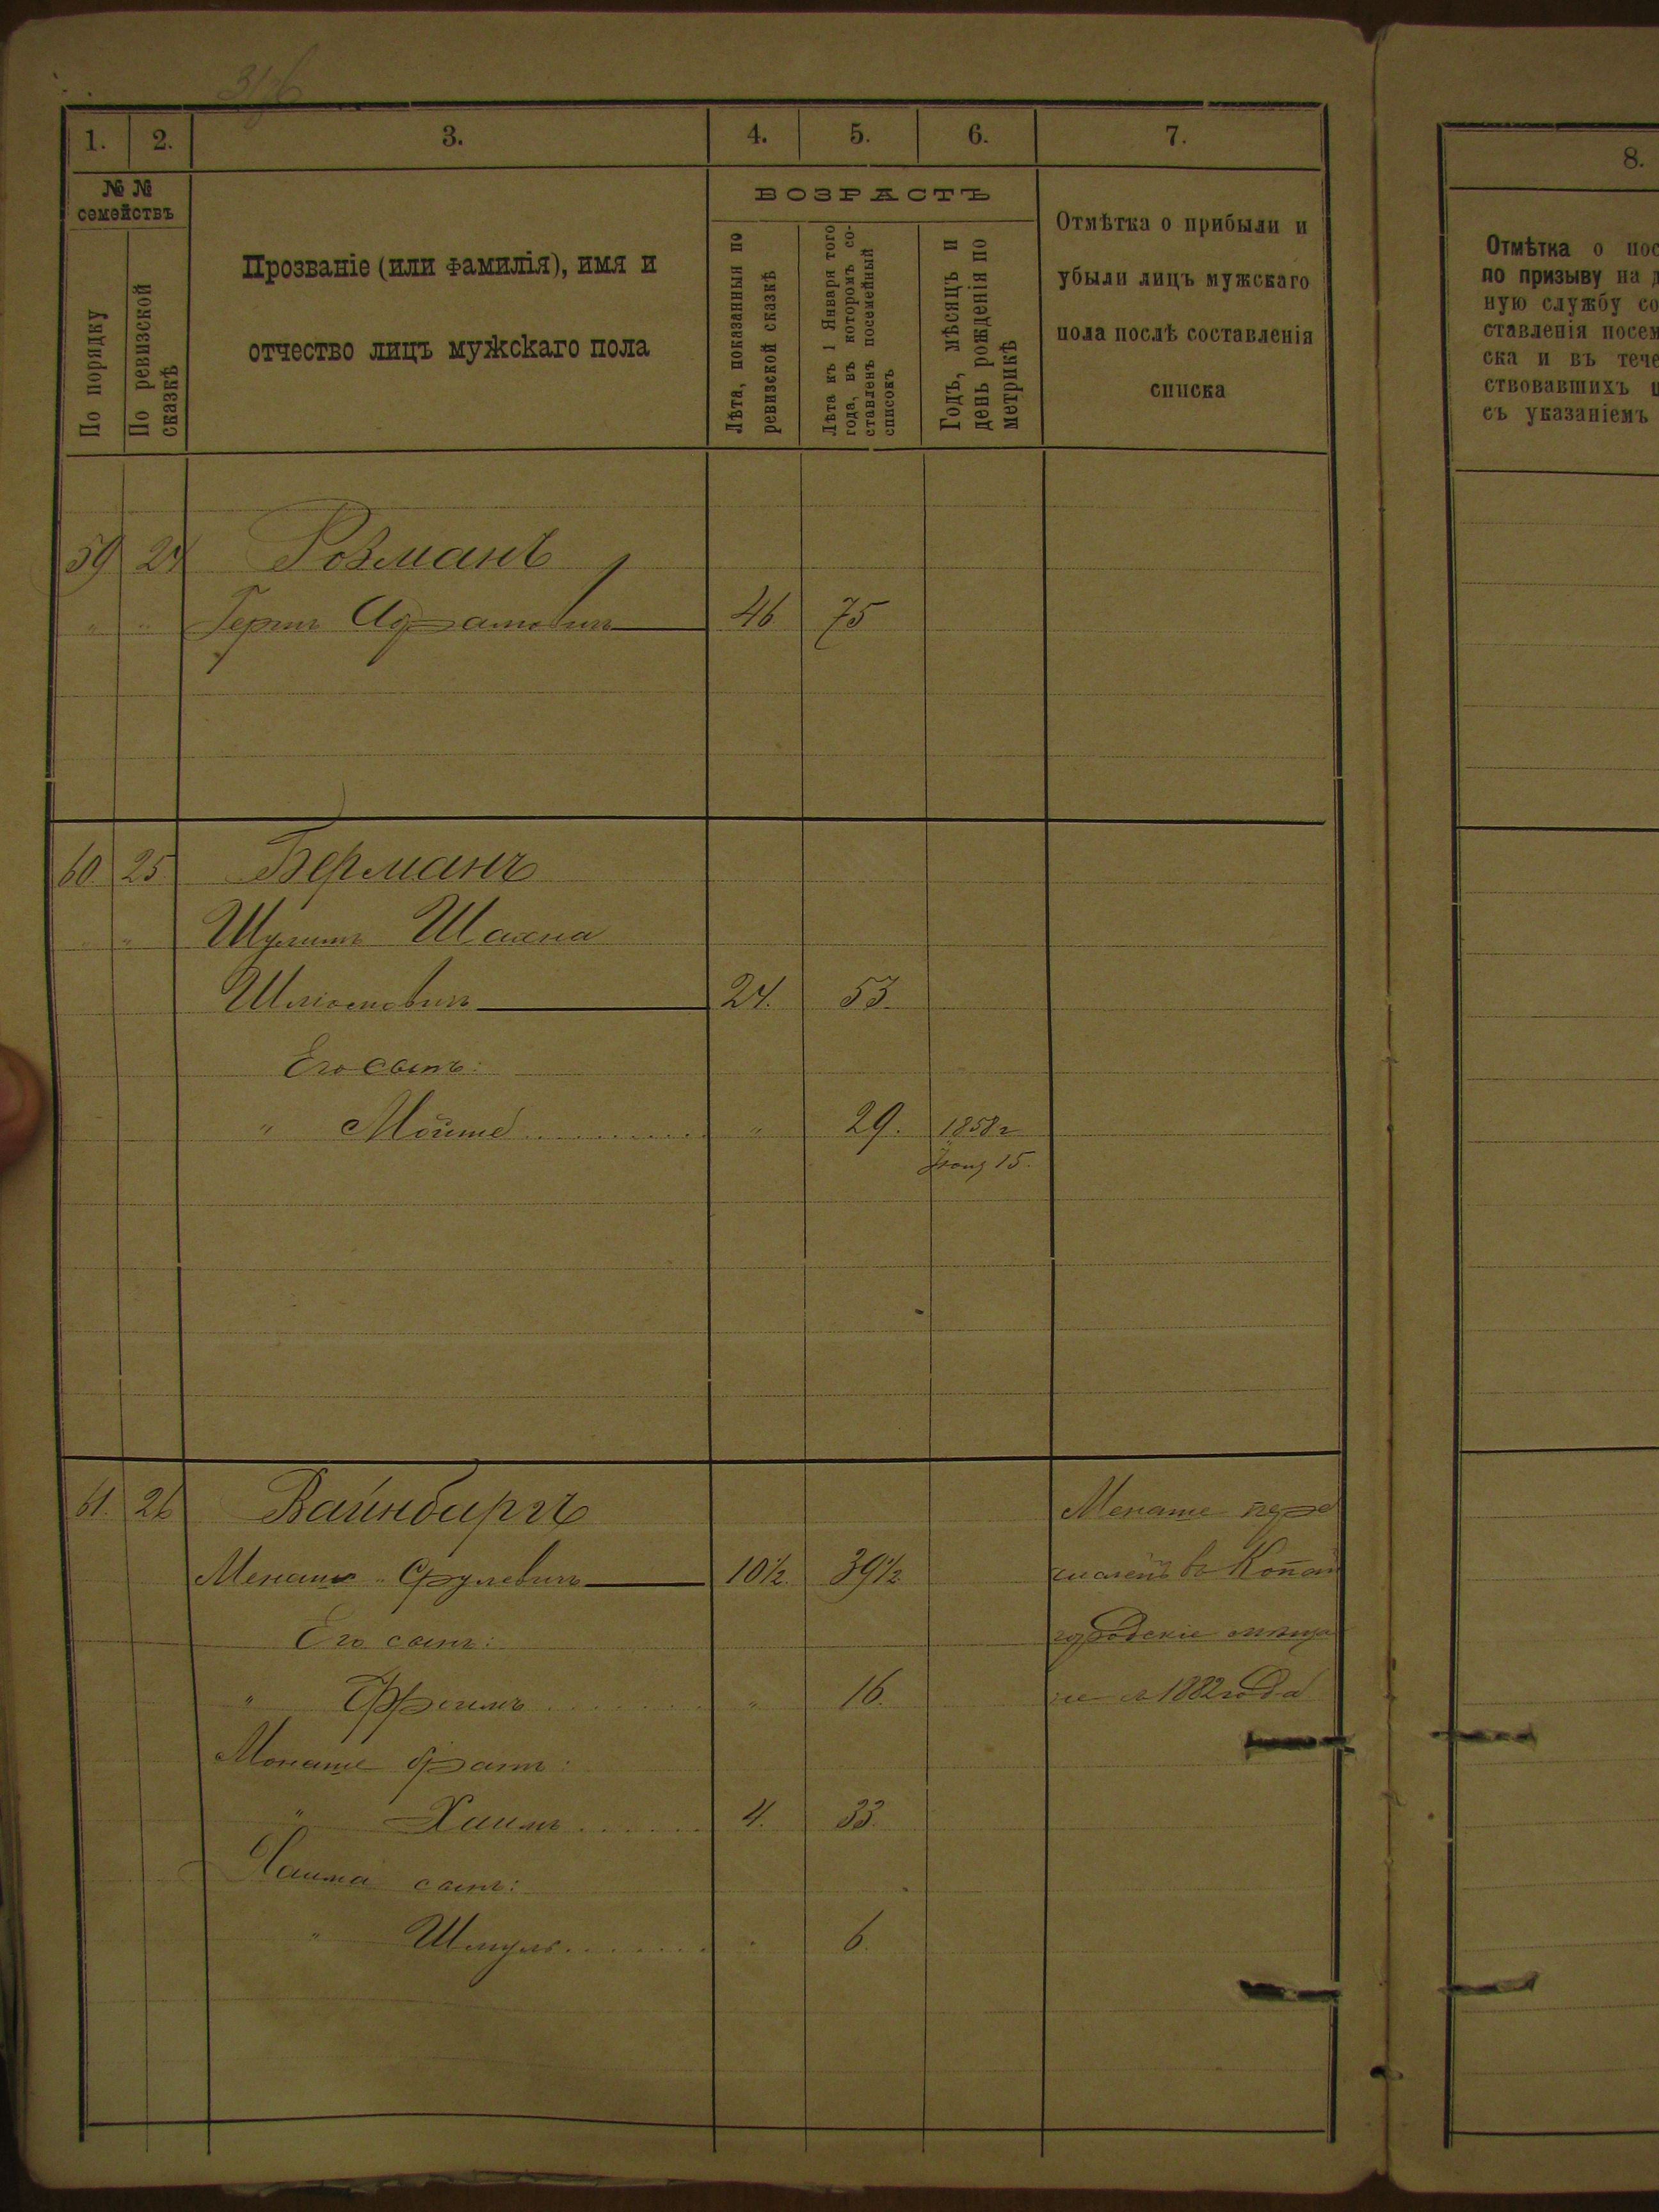 1. 2. 3. 4. 5. 6. 7. 8.
№ №
семействъ
По порядку
По ревизской
сказкѣ
Прозваніе (или фамилія), имя и
отчество лицъ мужскаго пола
ВОЗРАСТЪ
Лѣта, показанныя по
ревизской сказкѣ
Лѣта къ 1 Января того
года, въ которомъ со-
ставленъ посемейный
списокъ
Годъ, мѣсяцъ и
день рожденія по
метрикѣ
Отмѣтка о прибыли и
убыли лицъ мужскаго
пола послѣ составленія
списка
Отмѣтка о пос
по призыву на д
ную службу со
ставленія посем
ска и въ тече
ствовавшихъ
съ указаніемъ
59 24 Розманъ
" " 46 75
60 25 Берманъ
" " Шулимъ Шахна
Шліомовичъ 24. 53.
Его сынъ:
" Мойше " 29. 1858 г
Іюня 15.
61. 26 Вайнбаргъ Менаше пере
Менаше Срулевичъ 10½ 39½ численъ въ Копай
Его сынъ: городскіе мѣща
" Эфроимъ " 16. не съ 1882 года
Монаше братъ:
" Хаимъ 4. 33.
Хаима сынъ:
" Шмуль 6.